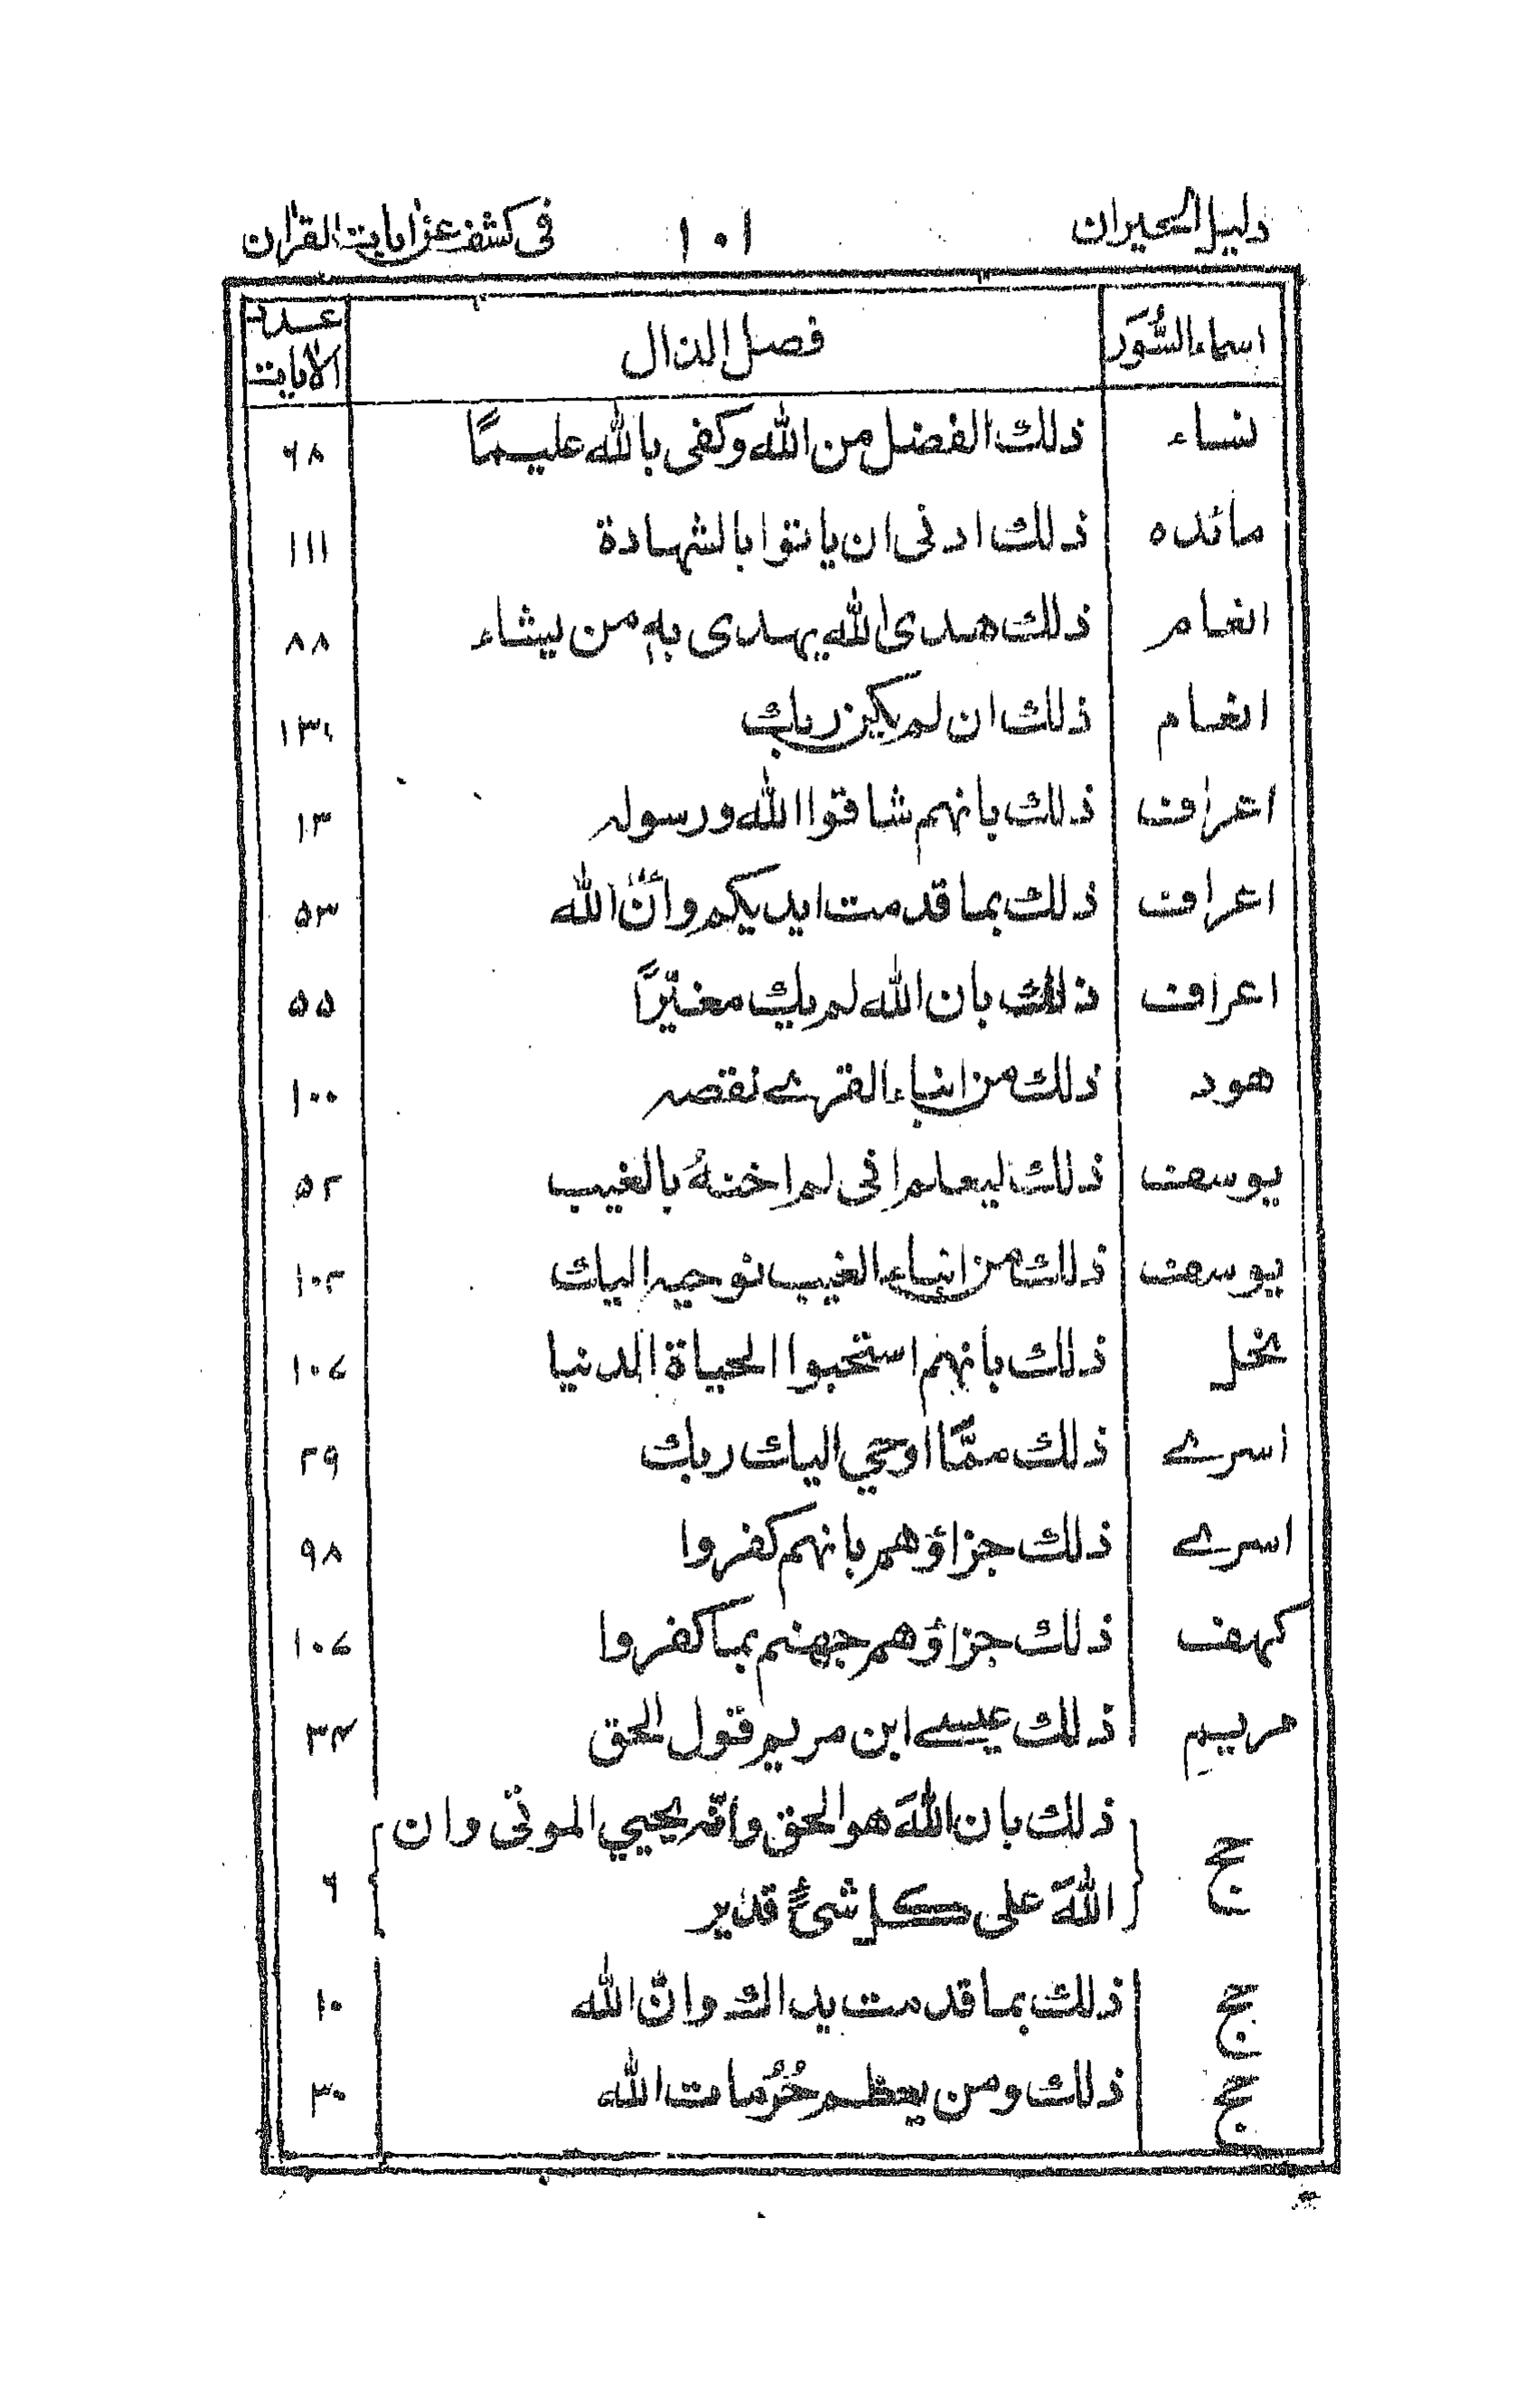 دليل الحيران ١٠١ فى كشف عن اٰيات القراٰن
اسماء السُّوَر فصل الذال عدد الاٰيات
نساء ذلك الفضل من الله وكفى بالله عليمًا ٦٨
مائده ذلك ادنى ان ياتوا بالشهادة ١١١
انعام ذلك هدى الله يهدى به من يشاء ٨٨
انعام ذلك ان لم يكن ربك
اعراف ذلك بانهم شاقوا الله ورسوله ١٣
اعراف ذلك بما قدمت ايديكم وانّ الله ٥٣
اعراف ذلك بان الله لم يك مغيّرًا ٥٥
هود ذلك من انباء القرے نقصه ١٠٠
يوسف ذلك ليعلم انى لم اخنهُ بالغيب ٥٢
يوسف ذلك من انباء الغيب نوحيه اليك ١٠٢
نحل ذلك بانهم استحبوا الحياة الدنيا ١٠٧
اسرے ذلك ممّا اوحي اليك ربك ٣٩
اسرے ذلك جزاؤهم بانهم كفروا ٩٨
كهف ذلك جزاؤهم جهنم بما كفروا ١٠٧
مريم ذلك عيسے ابن مريم قول الحق ٣٤
حج ذلك بان اللهَ هو الحق وانّه يحيي الموتى وان
اللهَ على كل شئٍ قدير ٦
حج ذلك بما قدمت يداك وانّ الله ١٠
حج ذلك ومن يعظم حُرُمات الله ٣٠